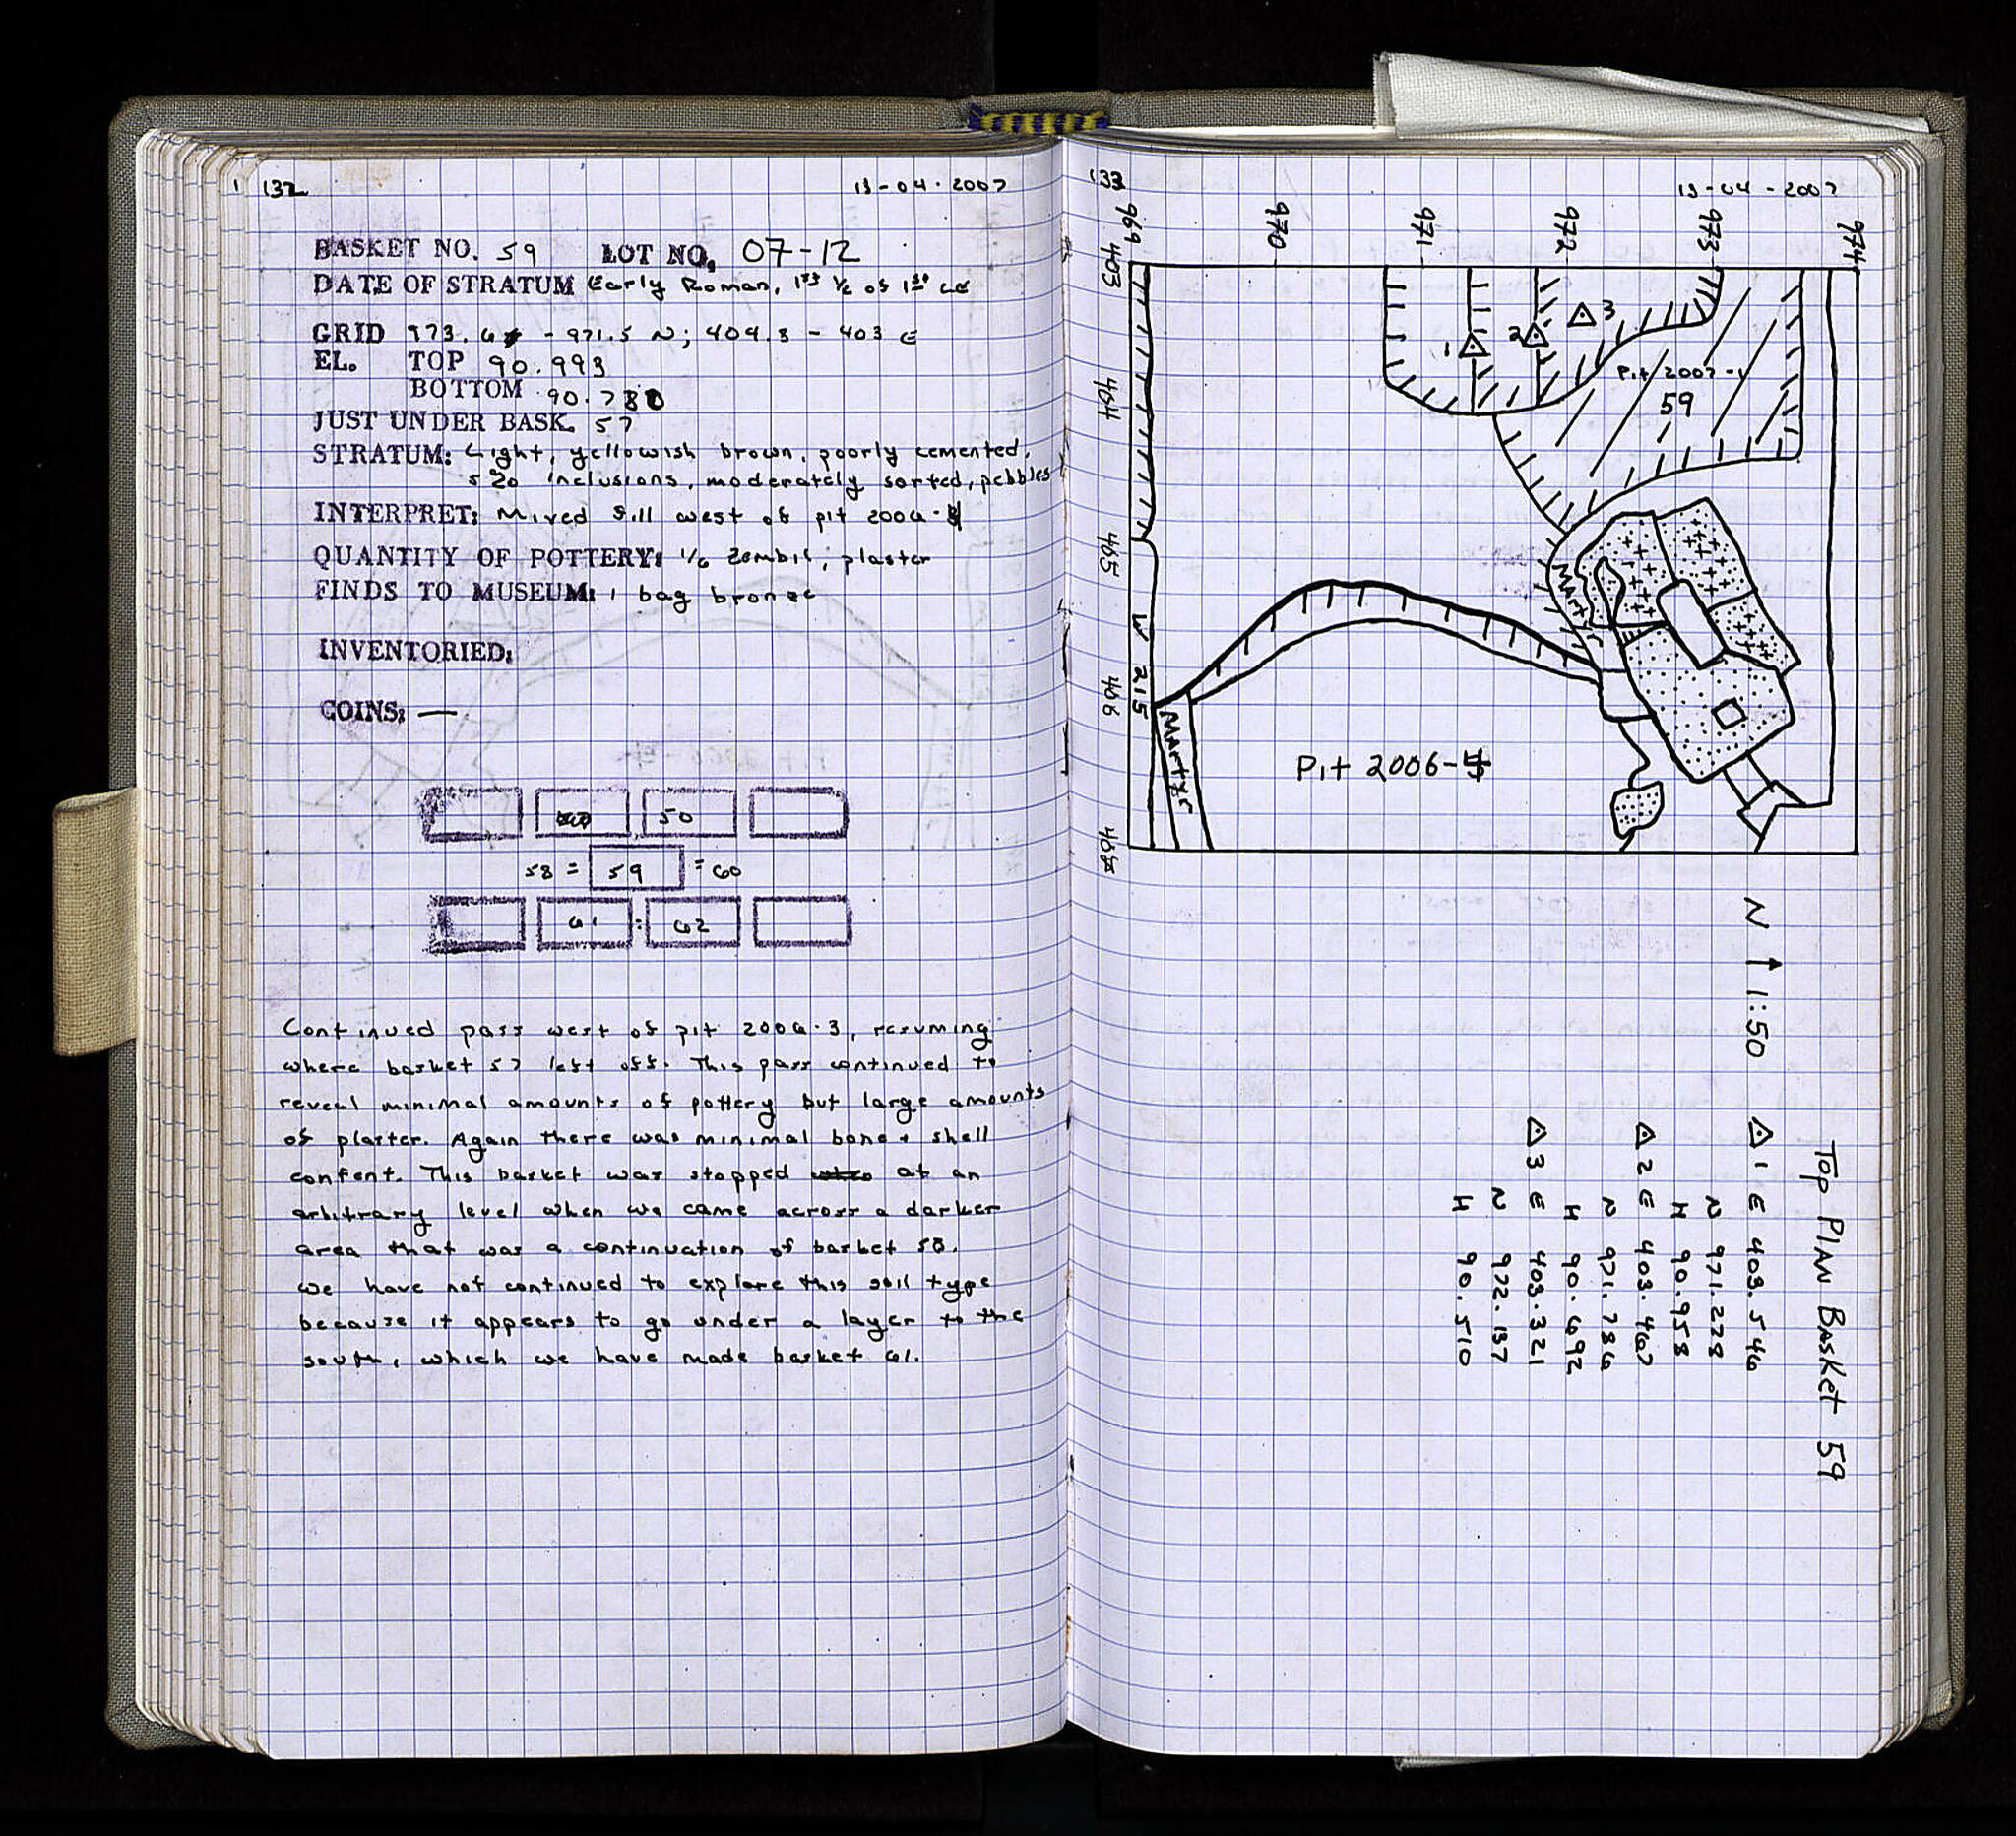 132
13-04-2007
BASKET NO. 59 LOT NO. 07-12
DATE OF STRATUM Early Roman, 1st ½ of 1st CE
GRID 973.6 - 971.5 N; 404.3 - 403 E
EL. TOP 90.993
BOTTOM 90.780
JUST UNDER BASK. 57
STRATUM: Light, yellowish brown, poorly cemented,
5% inclusions, moderately sorted, pebbles
INTERPRET: Mixed fill west of pit 2006-
QUANTITY OF POTTERY: 1/6 zembil, plaster
FINDS TO MUSEUM: 1 bag bronze
INVENTORIED:
COINS: —
50
58 = 59 = 60
61 : 62
Continued pass west of pit 2006-3, resuming
where basket 57 left off. This pass continued to
reveal minimal amounts of pottery but large amounts
of plaster. Again there was minimal bone + shell
content. This basket was stopped at an
arbitrary level when we came across a darker
area that was a continuation of basket 58.
we have not continued to explore this soil type
because it appears to go under a layer to the
south, which we have made basket 61.
133
13-04-2007
969 970 971 972 973 974
403
404
405
406
1
2
3
Pit 2007-1
59
Martyr
W 215
Martyr
Pit 2006-
N ↑ 1:50
Top PLAN Basket 59
△ 1 E 403.546
N 971.228
H 90.958
△ 2 E 403.467
N 971.786
H 90.692
△ 3 E 403.321
N 972.137
H 90.510